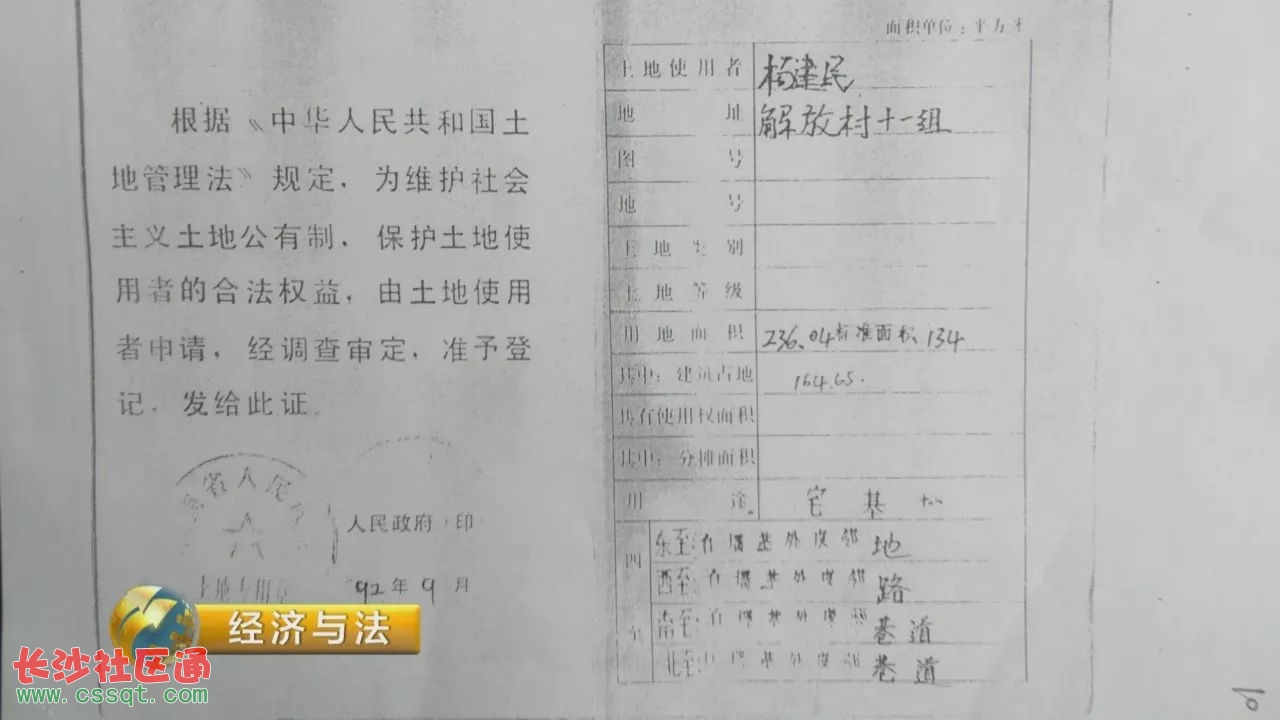 根据《中华人民共和国土
地管理法》规定，为维护社会
主义土地公有制，保护土地使
用者的合法权益，由土地使用
者申请，经调查审定，准予登
记，发给此证
省人民
人民政府（印
土地专用章
92年9月
面积单位：平方米
土地使用者 杨建民
地址 解放村十一组
图号
地号
土地类别
土地等级
用地面积 236.04标准面积134
其中：建筑占地 164.65.
共有使用权面积
其中：分摊面积
用途 宅基
四至
东至： 地
西至： 路
南至： 巷道
北至： 巷道
经济与法
长沙社区通
www.cssqt.com